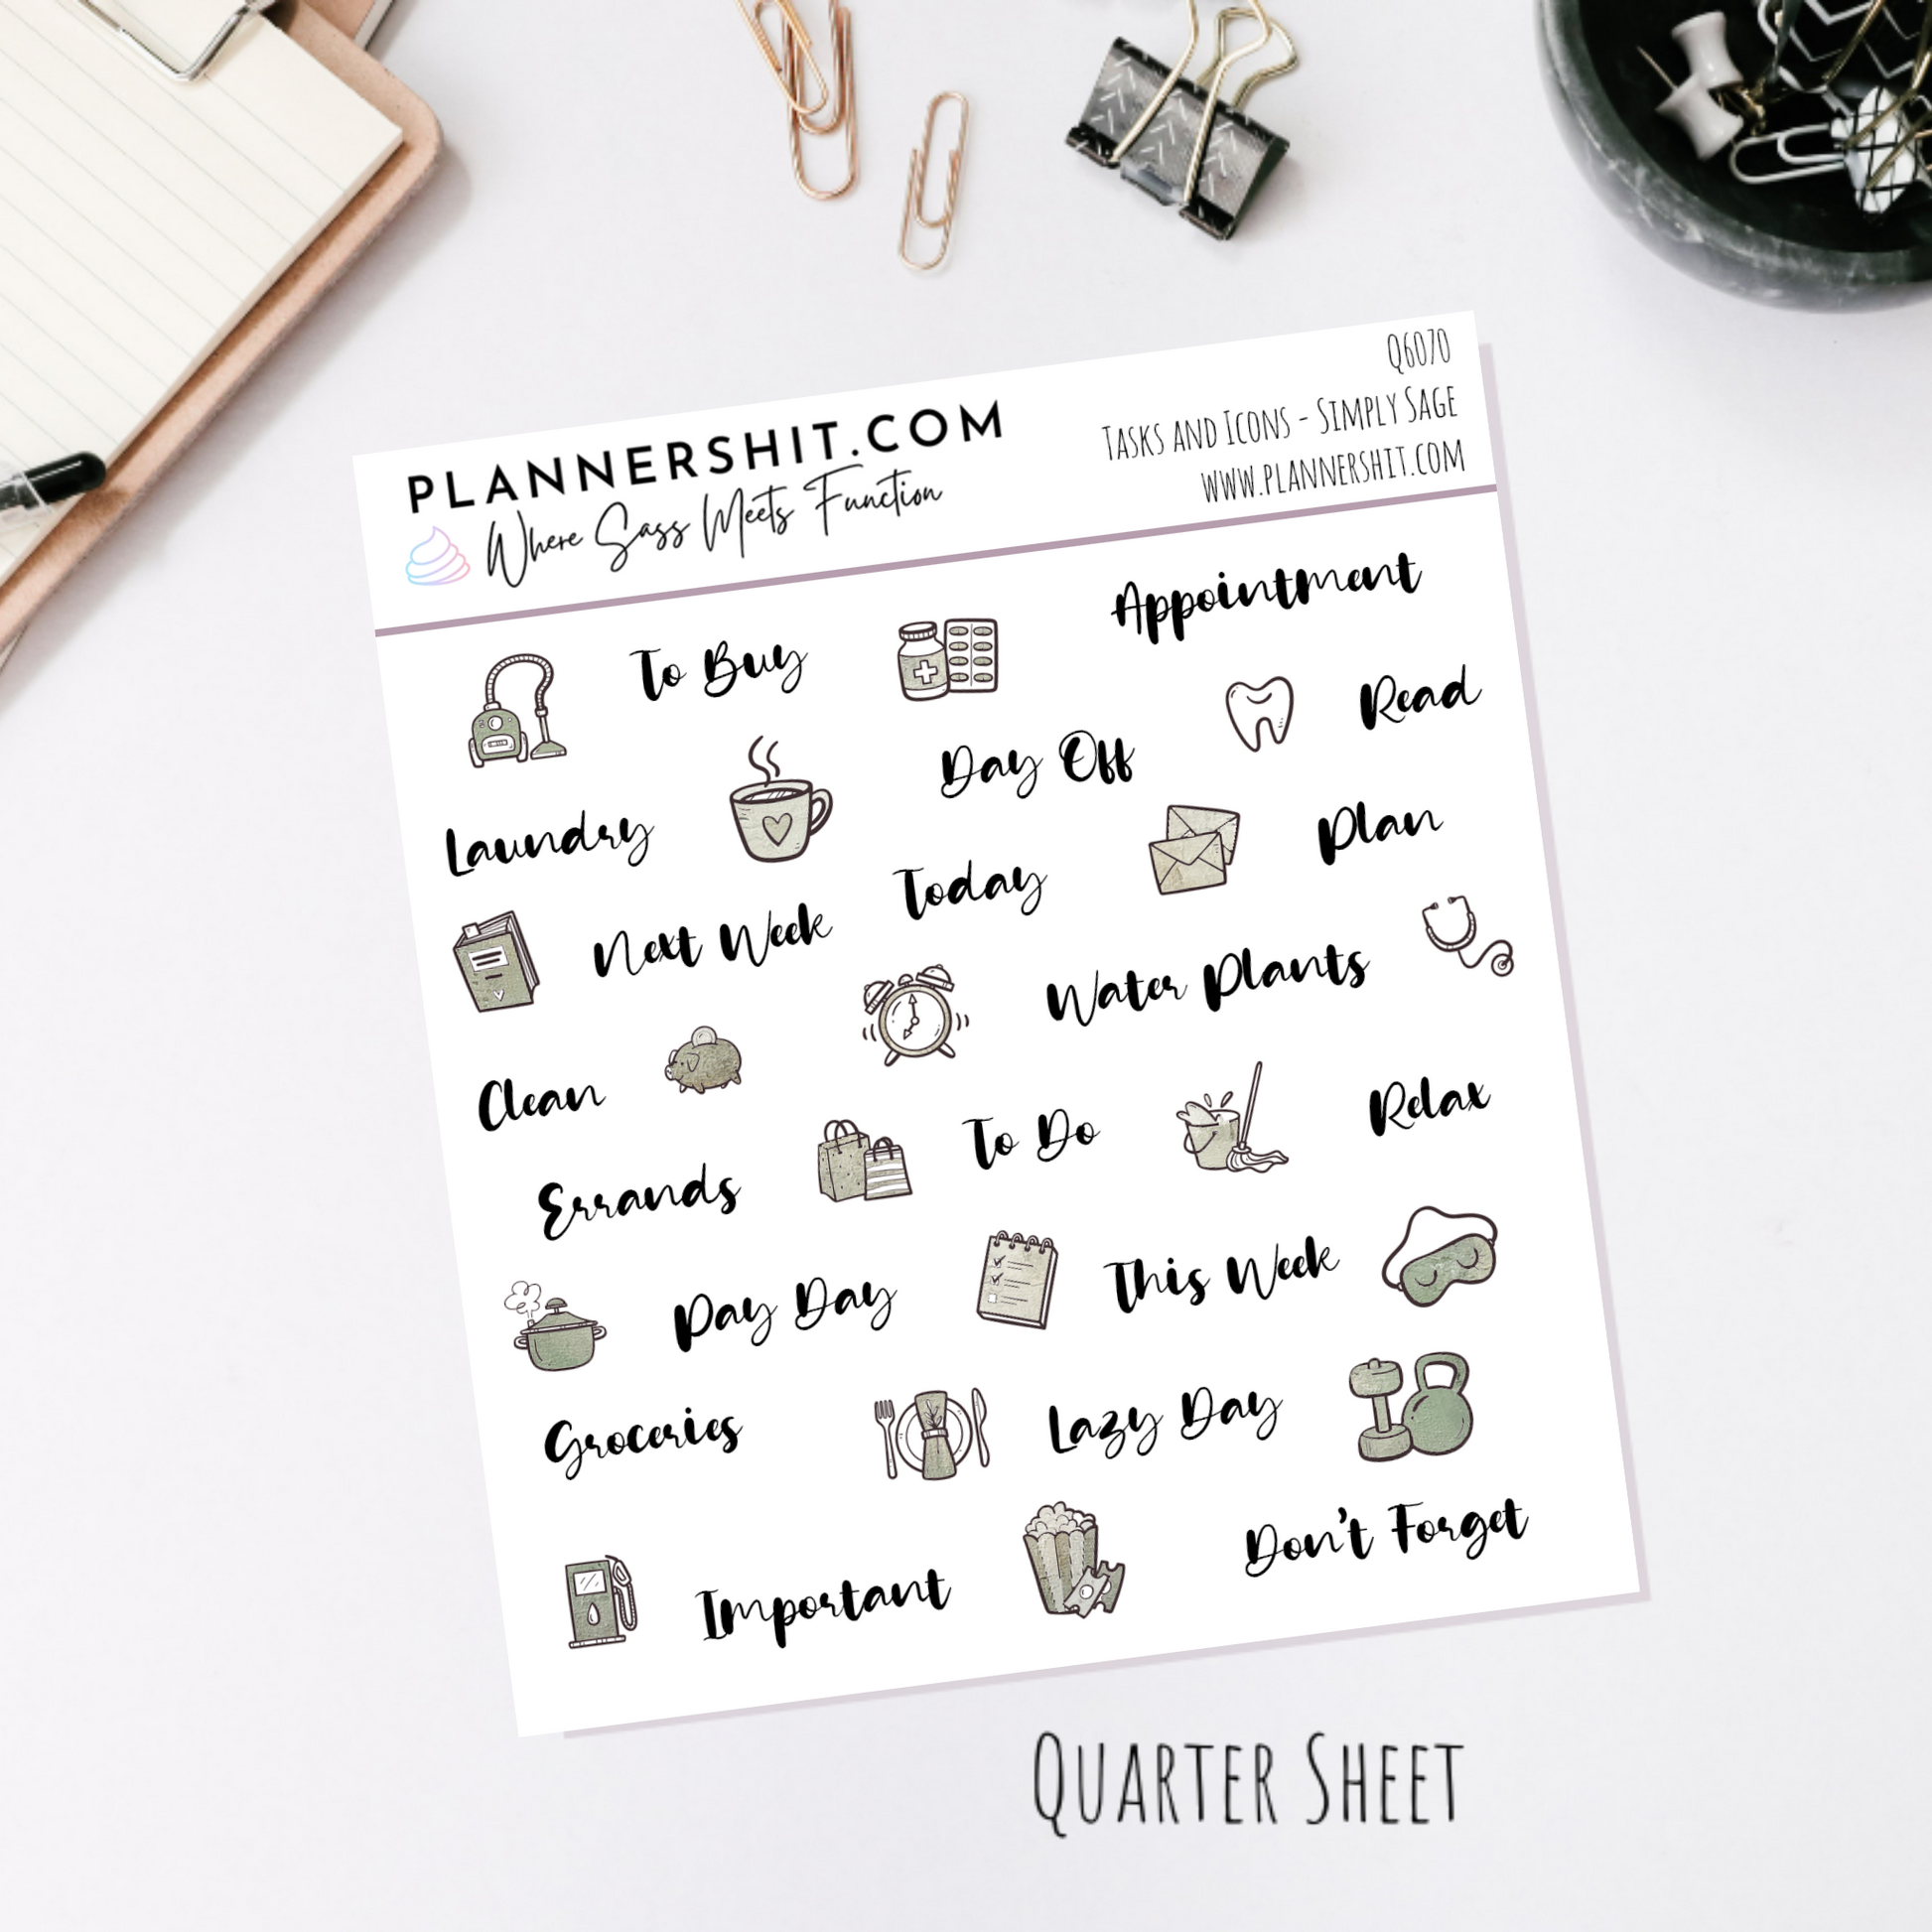 PLANNERSHIT.COM
Where Sass Meets Function
Q6070
Tasks and Icons - Simply Sage
www.plannershit.com
To Buy
Appointment
Read
Laundry
Day Off
Plan
Next Week
Today
Water Plants
Clean
To Do
Relax
Errands
Pay Day
This Week
Groceries
Lazy Day
Important
Don't Forget
Quarter Sheet